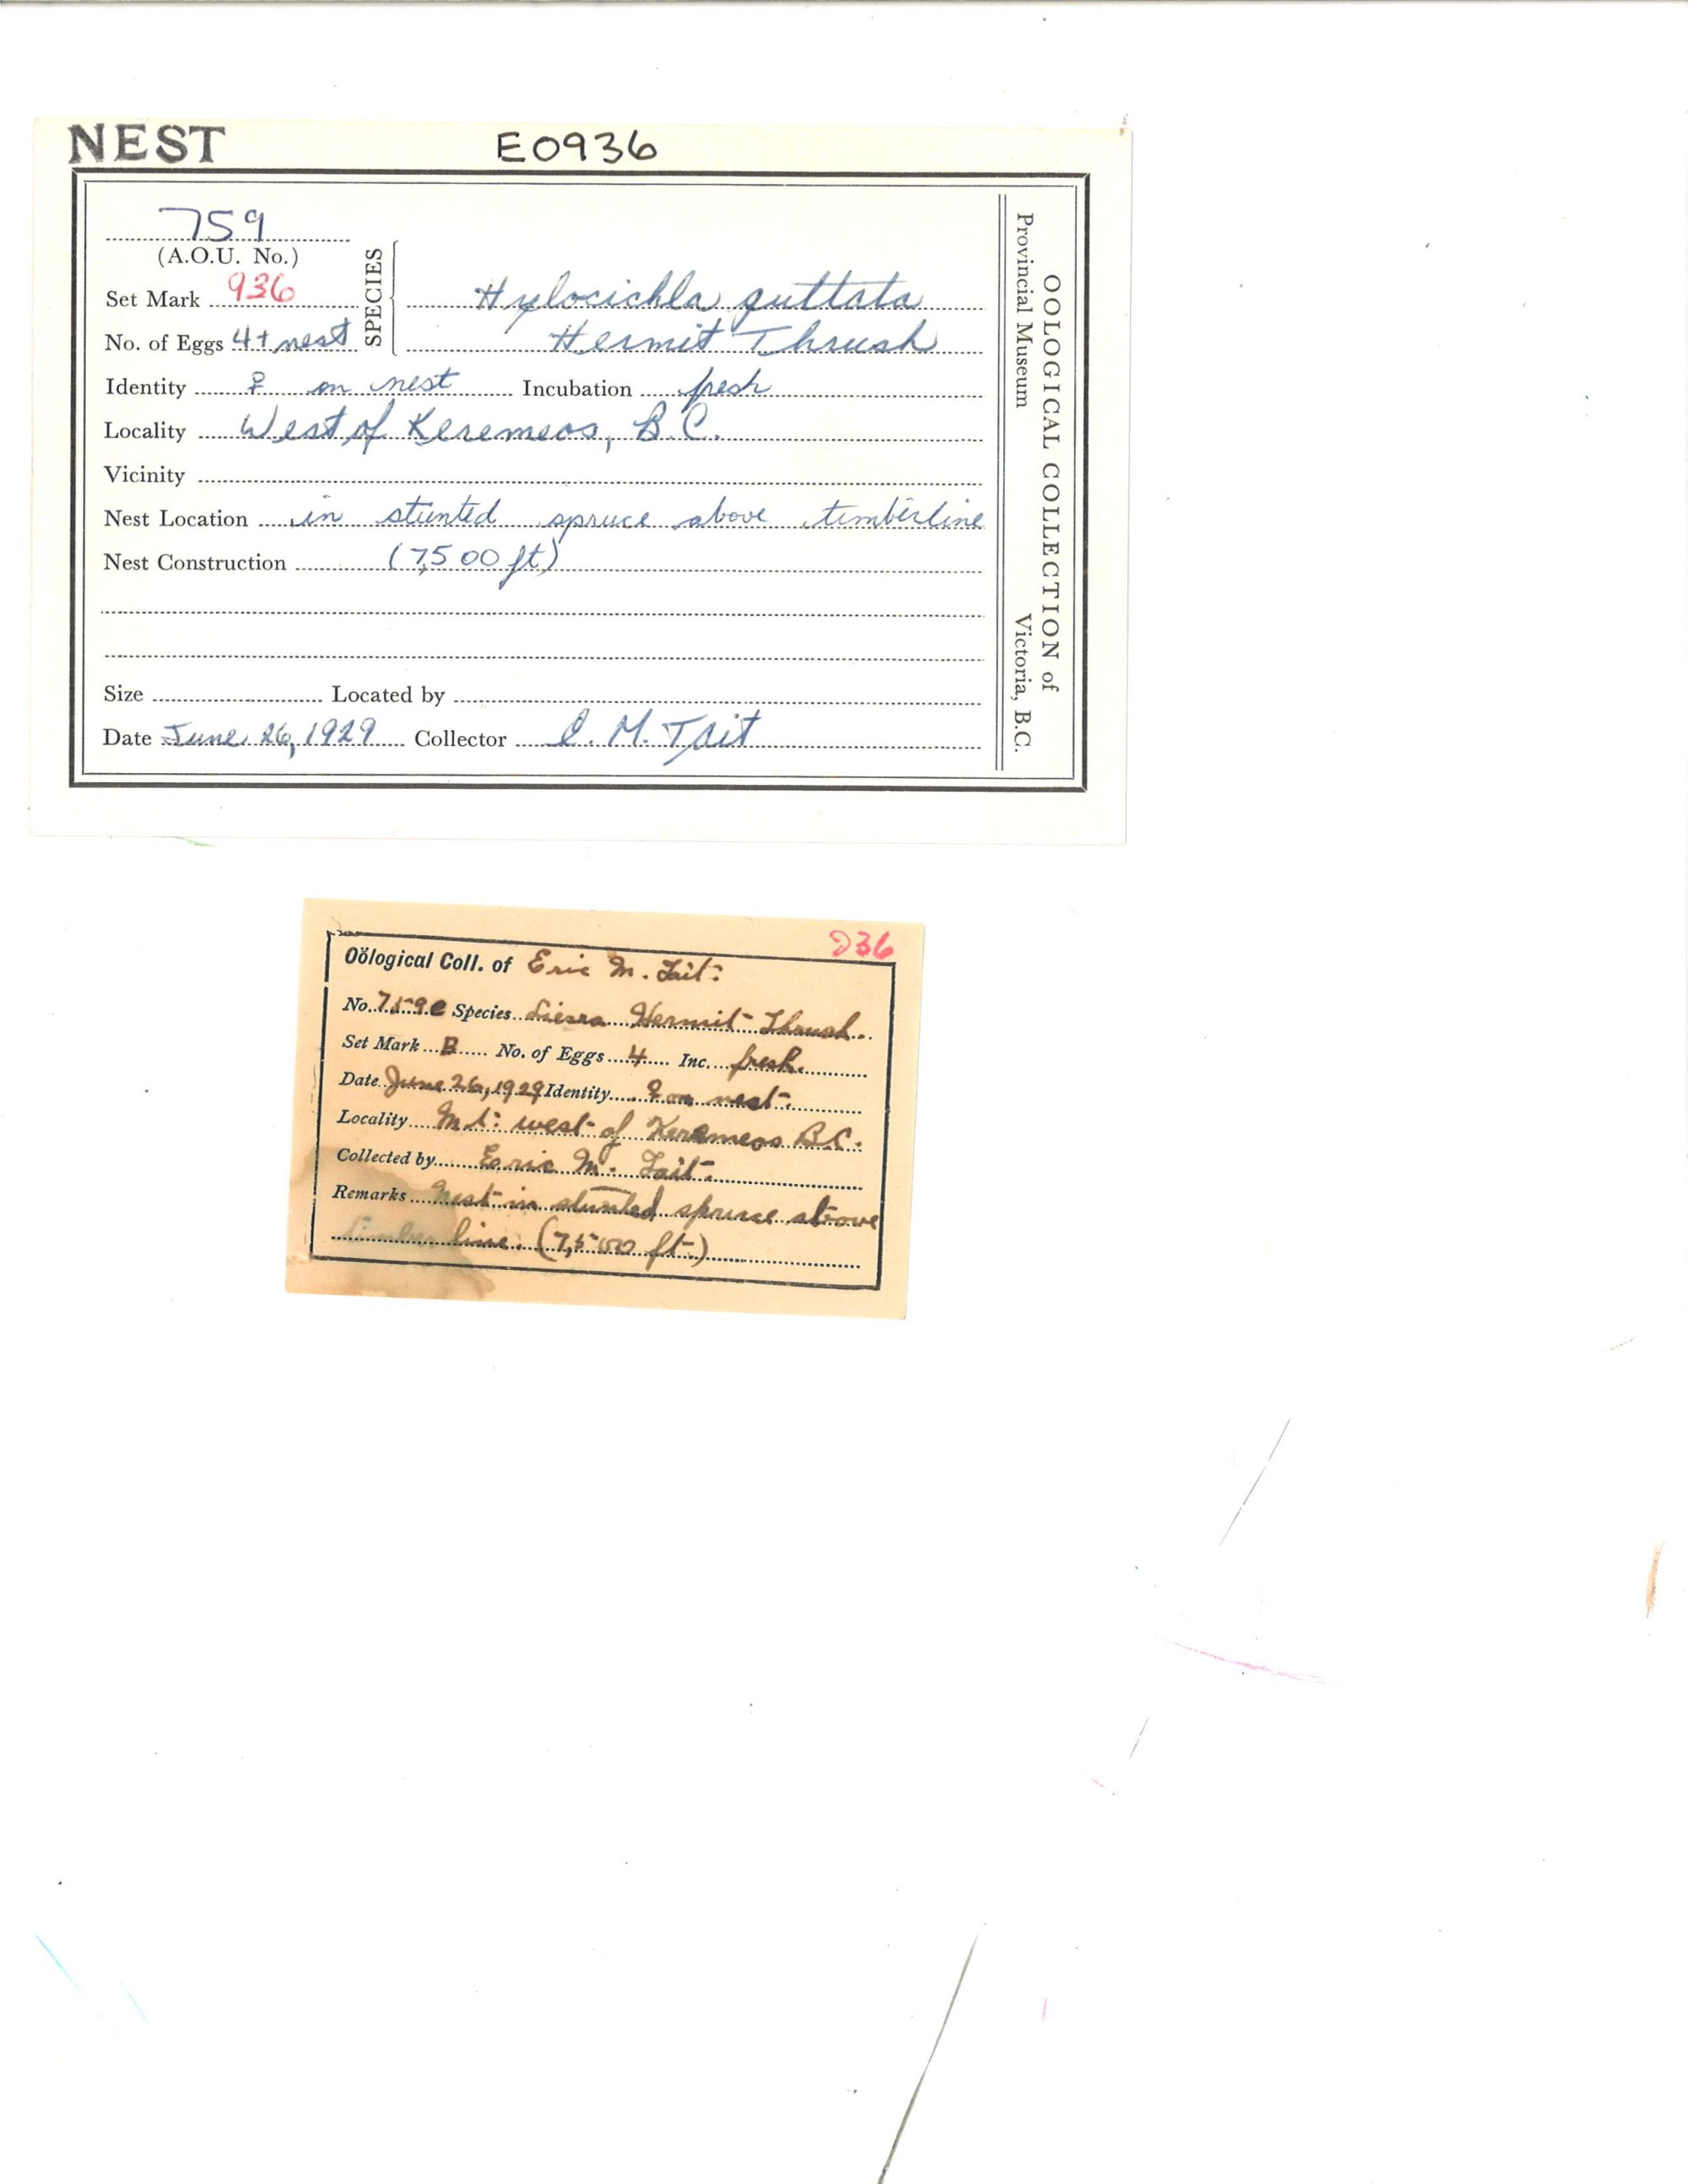 NEST E0936
759
(A.O.U. No.)
Set Mark 936
SPECIES
Hylocichla guttata
No. of Eggs 4 + nest
Hermit Thrush
Identity ♀ on nest Incubation fresh
Locality West of Keremeos, B.C.
Vicinity
Nest Location in stunted spruce above timberline
Nest Construction (7,500 ft)
Size Located by
Date June 26, 1929 Collector E. M. Tait
OOLOGICAL COLLECTION of
Provincial Museum Victoria, B.C.
936
Oölogical Coll. of Eric M. Tait.
No. 759e Species Sierra Hermit Thrush
Set Mark B No. of Eggs 4 Inc. fresh.
Date June 26, 1929 Identity ♀ on nest.
Locality Mt. west of Keremeos B.C.
Collected by Eric M. Tait.
Remarks Nest in stunted spruce above
timber line. (7,500 ft.)